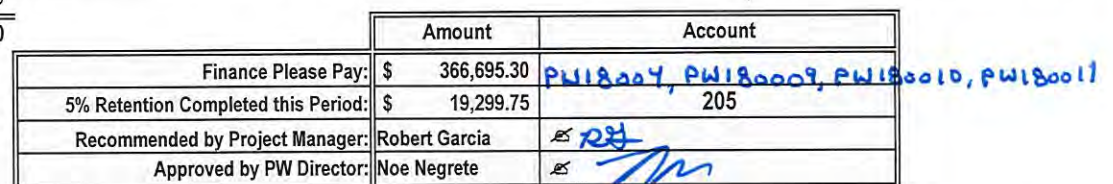 Amount Account
Finance Please Pay: $ 366,695.30 PW18004, PW180009, PW180010, PW180011
5% Retention Completed this Period: $ 19,299.75 205
Recommended by Project Manager: Robert Garcia RG
Approved by PW Director: Noe Negrete